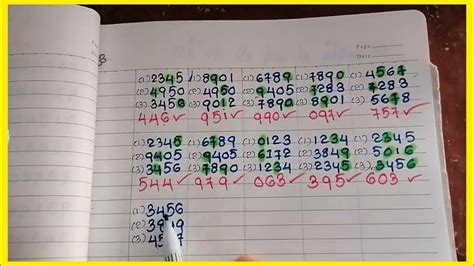 Page
Date
(1) 2345 (1) 8901 (1) 6789 (1) 7890 (1) 4567
(2) 4950 (2) 4950 (2) 9405 (2) 7283 (2) 7283
(3) 3456 (3) 9012 (3) 7890 (3) 8901 (3) 5678
446 ✓ 951 ✓ 990 ✓ 097 ✓ 757 ✓
(1) 2345 (1) 6789 (1) 0123 (1) 1234 (1) 2345
(2) 9405 (2) 9405 (2) 6172 (2) 3849 (2) 5016
(3) 3456 (3) 7890 (3) 1234 (3) 2345 (3) 3456
544 ✓ 979 ✓ 063 ✓ 395 ✓ 603 ✓
(1) 3456
(2)
(3)